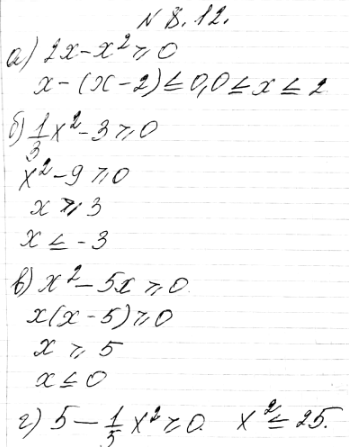 № 8.12.
а) 2x - x² ≥ 0
x - (x - 2) ≤ 0, 0 ≤ x ≤ 2
б) 1/3 x² - 3 ≥ 0
x² - 9 ≥ 0
x ≥ 3
x ≤ -3
в) x² - 5x ≥ 0
x(x - 5) ≥ 0
x ≥ 5
x ≤ 0
г) 5 - 1/5 x² ≥ 0. x² ≤ 25.